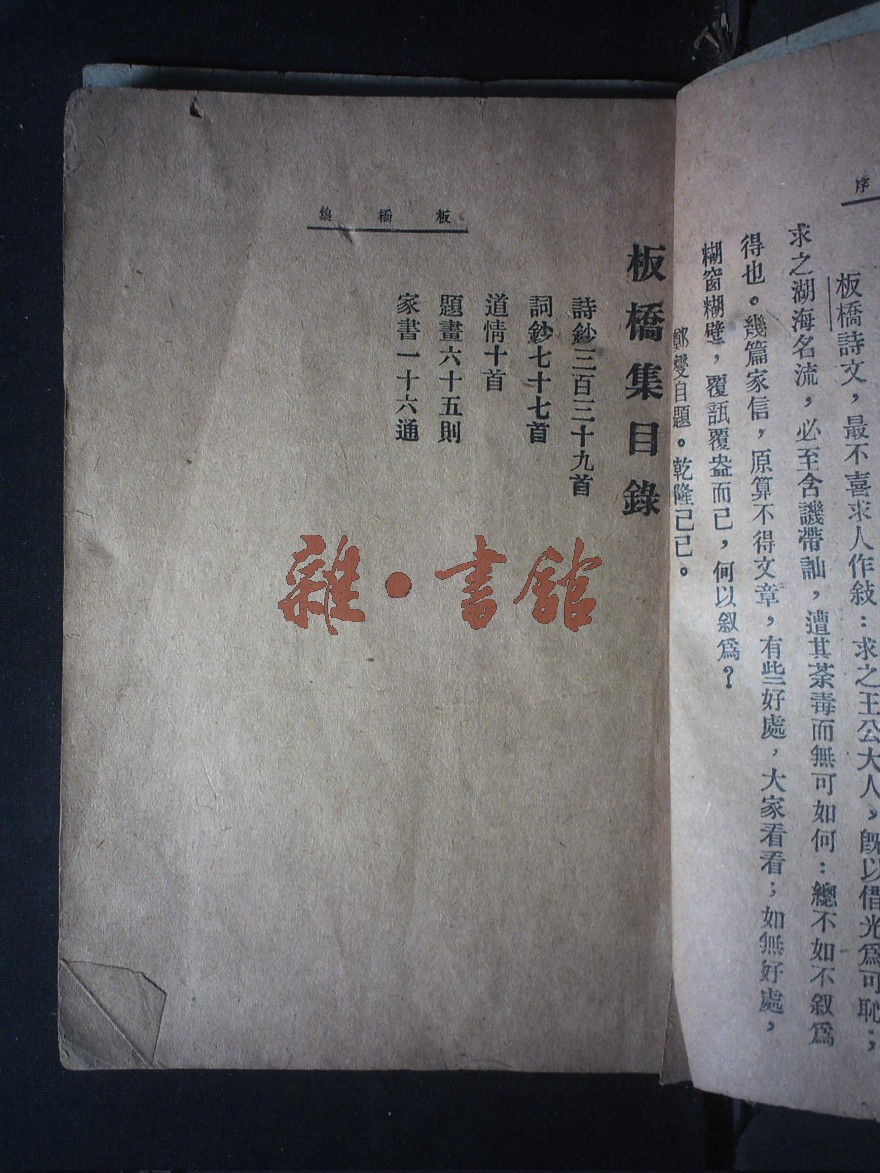 序
板橋詩文，最不喜求人作敍：求之王公大人，旣以借光爲可恥；
求之湖海名流，必至含譏帶訕，遭其荼毒而無可如何：總不如不叙爲
得也。幾篇家信，原算不得文章，有些好處，大家看看；如無好處，
糊窗糊壁，覆瓿覆盎而已，何以叙爲？
鄭燮自題。乾隆己巳。
板橋集
板橋集目錄
詩鈔三百三十九首
詞鈔七十七首
道情十首
題畫六十五則
家書一十六通
雜·書館